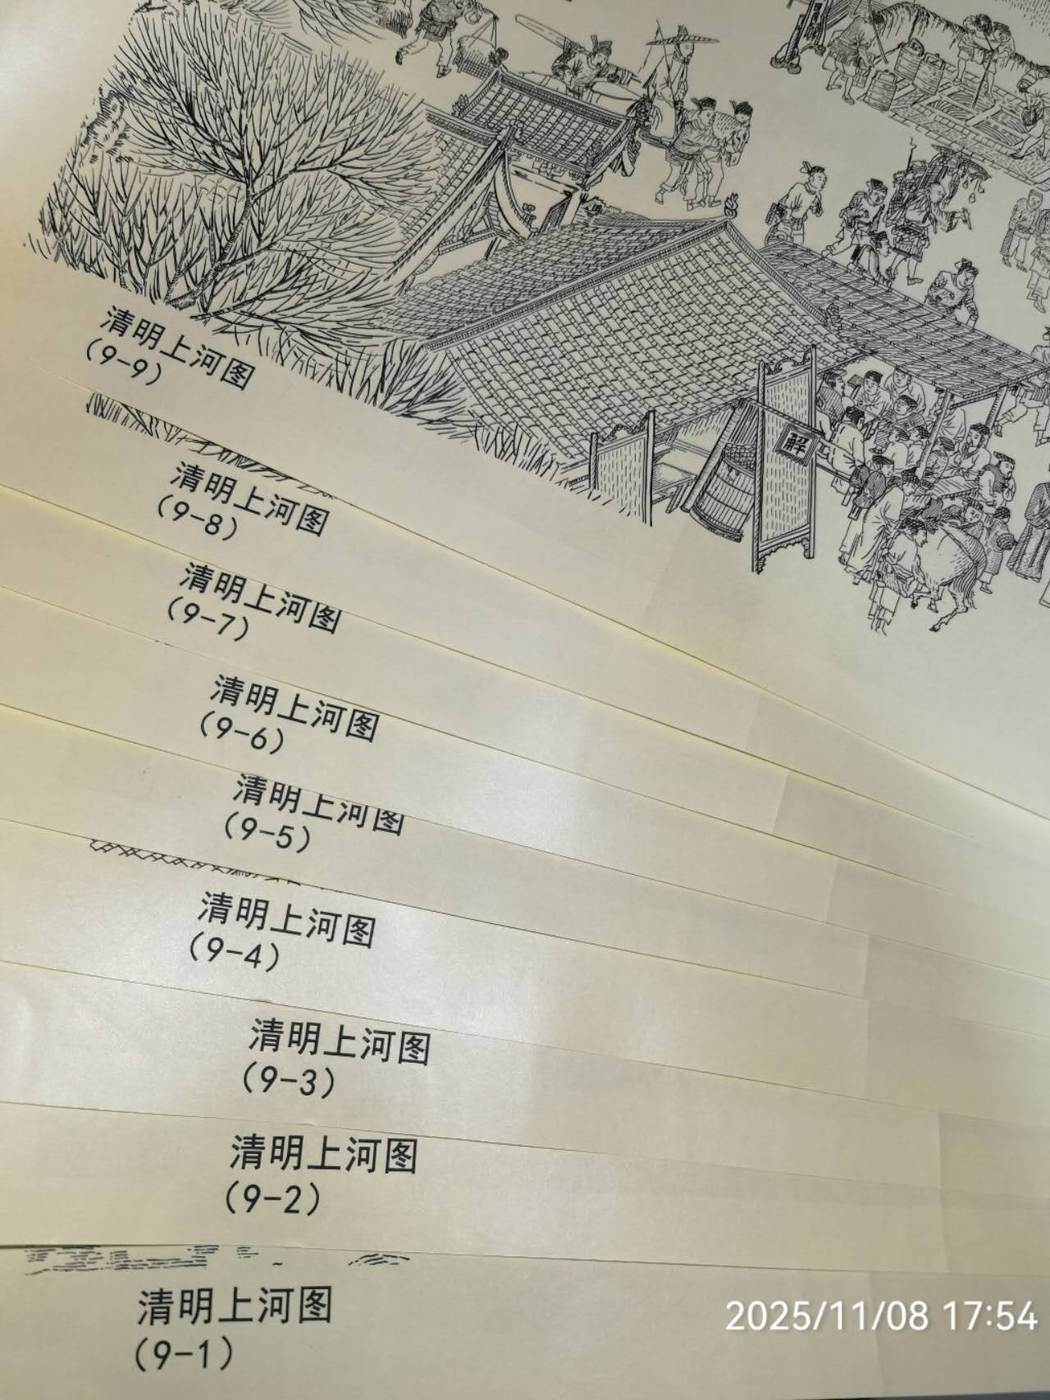 解
清明上河图
(9-9)
清明上河图
(9-8)
清明上河图
(9-7)
清明上河图
(9-6)
清明上河图
(9-5)
清明上河图
(9-4)
清明上河图
(9-3)
清明上河图
(9-2)
清明上河图
(9-1)
2025/11/08 17:54